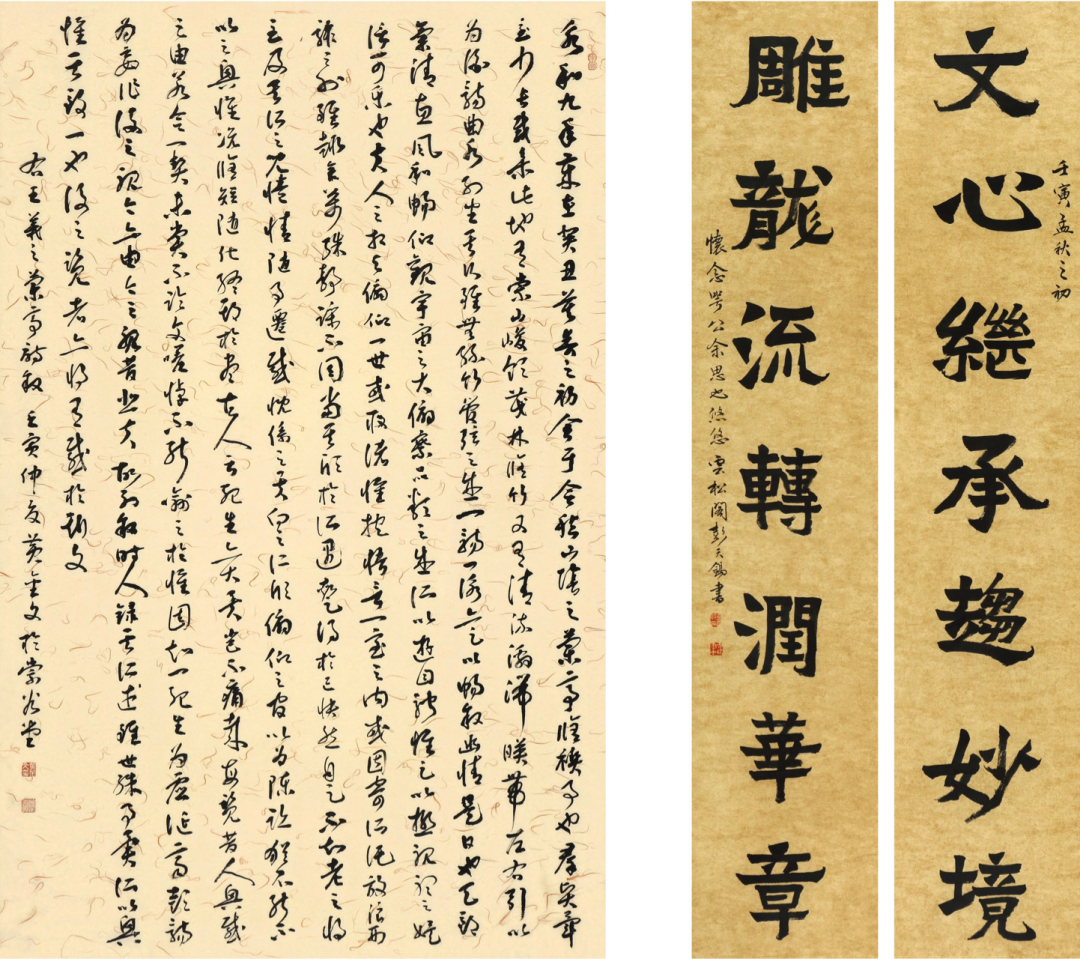 文心繼承趨妙境
壬寅孟秋之初
雕龍流轉潤華章
懷念咢公余思也悠悠雲松閣彭天錫書
永和九年歲在癸丑暮春之初會于會稽山陰之蘭亭脩禊事也群賢畢
至少長咸集此地有崇山峻領茂林脩竹又有清流激湍暎帶左右引以
為流觴曲水列坐其次雖無絲竹管弦之盛一觴一詠亦足以暢敘幽情是日也天朗
氣清惠風和暢仰觀宇宙之大俯察品類之盛所以遊目騁懷足以極視聽之娛
信可樂也夫人之相與俯仰一世或取諸懷抱悟言一室之內或因寄所託放浪形
骸之外雖趣舍萬殊靜躁不同當其欣於所遇蹔得於己快然自足不知老之將
至及其所之既惓情隨事遷感慨係之矣向之所欣俯仰之間以為陳跡猶不能不
以之興懷況脩短隨化終期於盡古人云死生亦大矣豈不痛哉每覽昔人興感
之由若合一契未嘗不臨文嗟悼不能喻之於懷固知一死生為虛誕齊彭殤
為妄作後之視今亦由今之視昔悲夫故列敘時人錄其所述雖世殊事異所以興
懷其致一也後之覽者亦將有感於斯文
右王羲之蘭亭詩敘 壬寅仲夏黃金文於崇谷堂